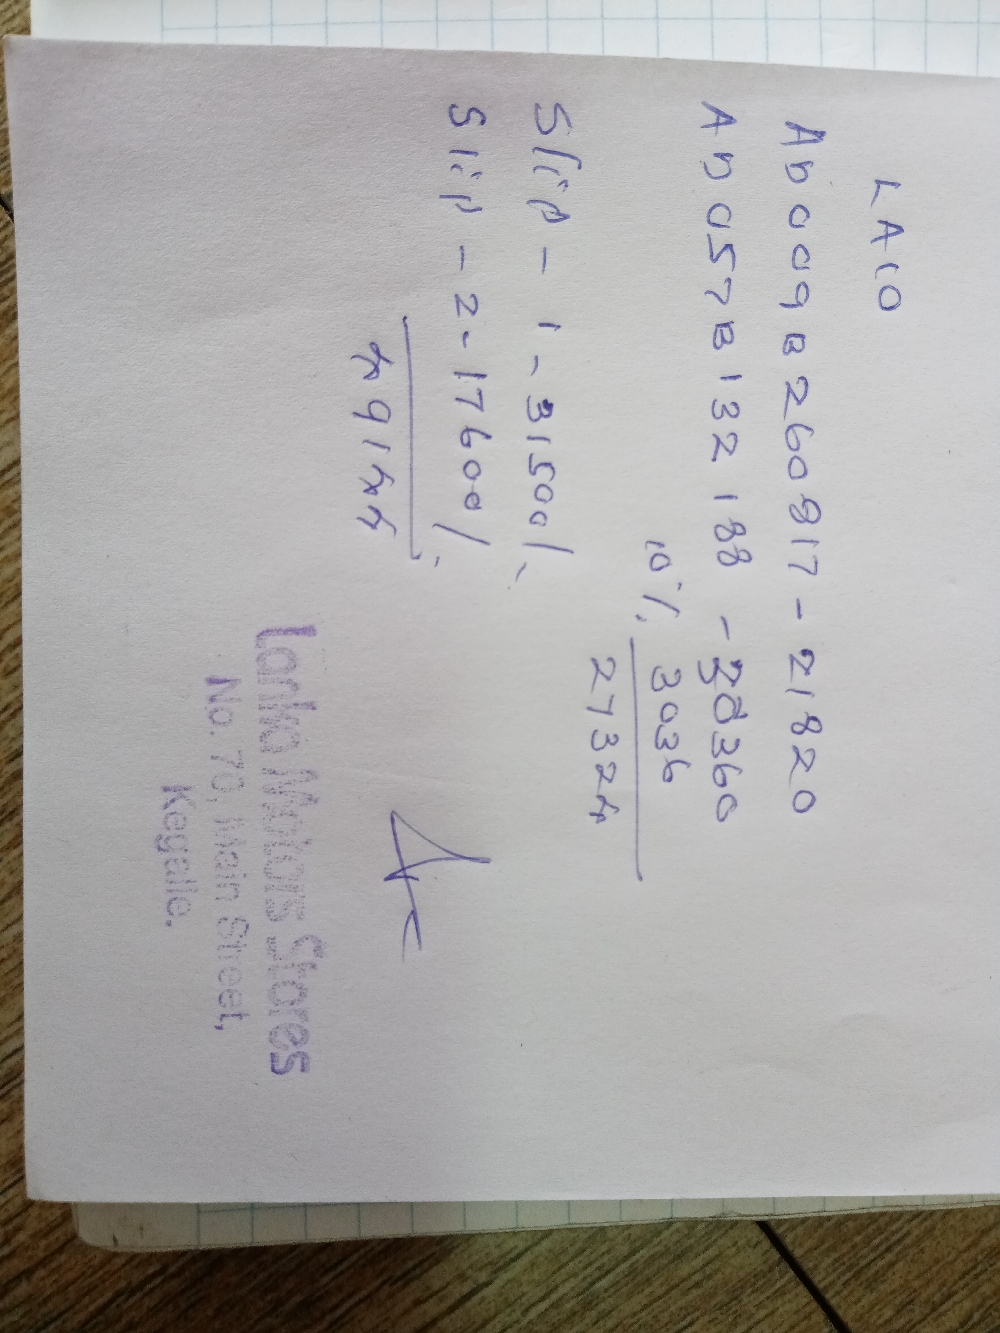 LA10
Ab009B260817 - 21820
Ab057B132188 - 30360
10% 3036
27324
Slip - 1 - 31500/-
Slip - 2 - 17600/-
49144
Lanka Motors Stores
No. 70, Main Street,
Kegalle.